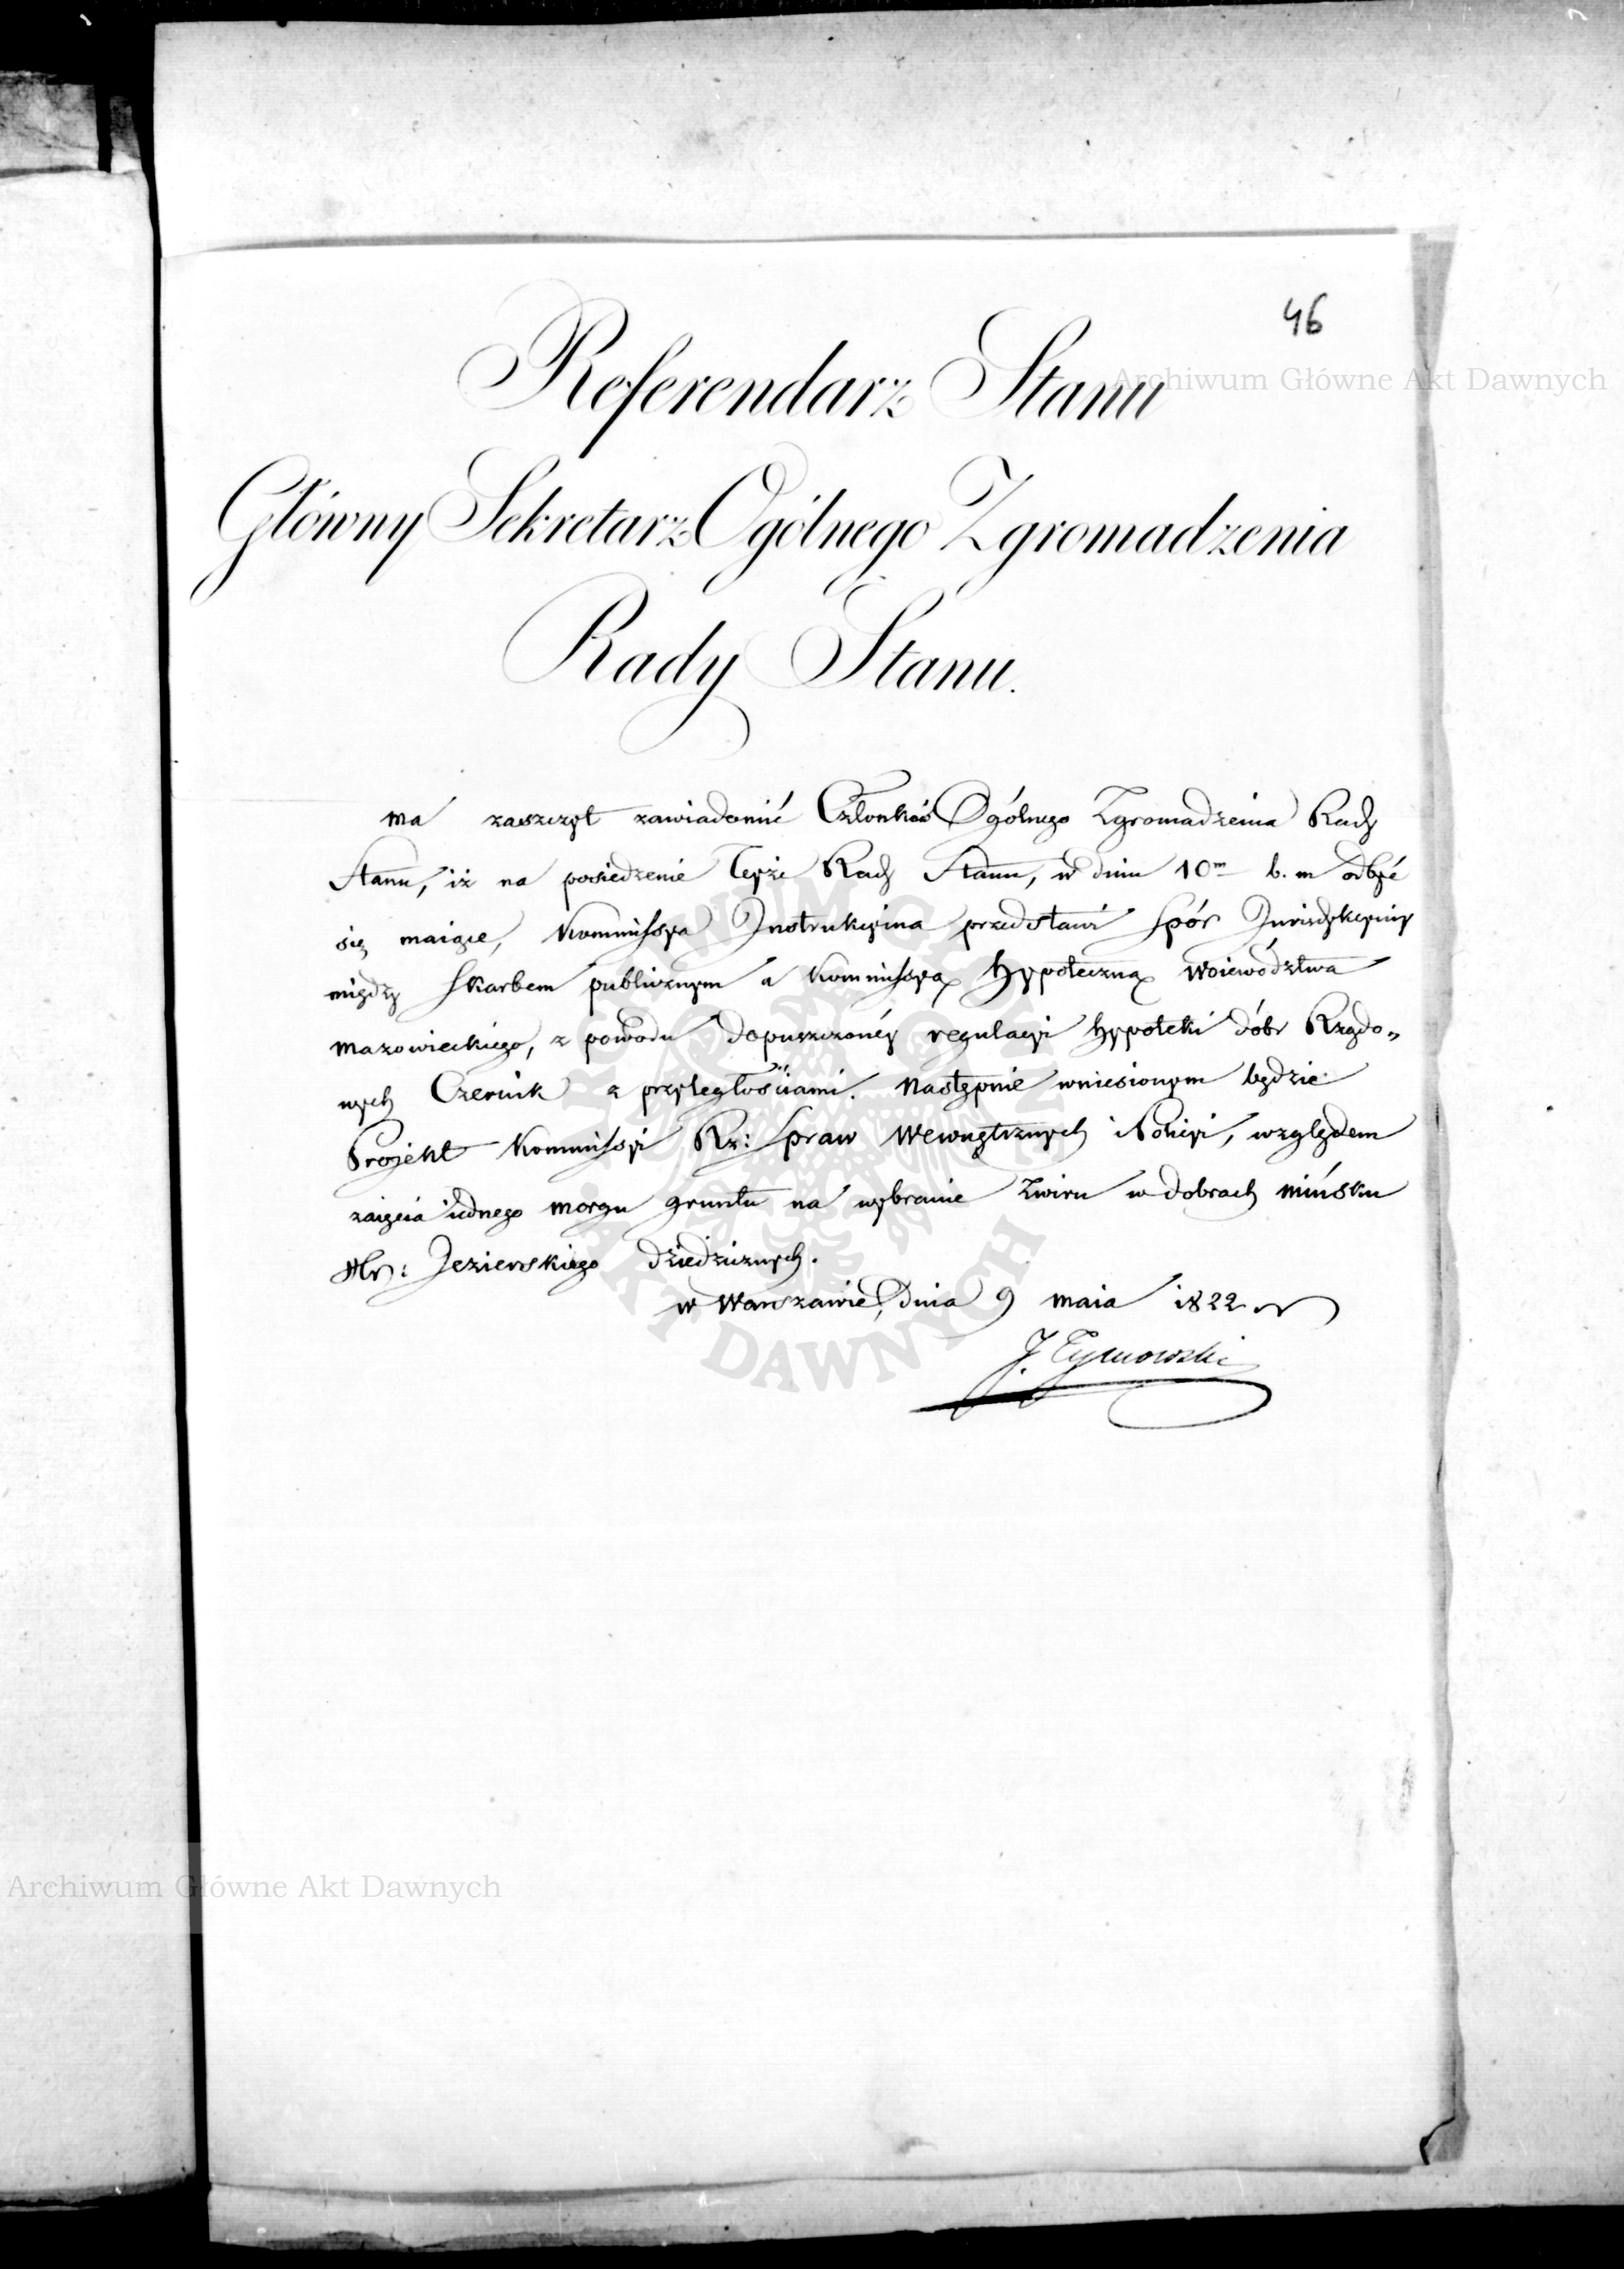 46
Referendarz Stanu
Główny Sekretarz Ogólnego Zgromadzenia
Rady Stanu.
ma zaszczyt zawiadomić Członków Ogólnego Zgromadzenia Rady
Stanu, iż na posiedzenie Teyże Rady Stanu, w dniu 10m b. m odbyć
się maiące, Kommissya Instrukcyina przedstawi Spór Jurisdykcyiny
między Skarbem publicznym a Kommissyą Hypoteczną Woiewództwa
Mazowieckiego, z powodu dopuszczonéy regulacyi hypoteki dóbr Rządo„
wych Czernik z przyległościami. Następnie wniesionym będzie
Projekt Kommissyi Rz: Spraw Wewnętrznych i Policyi, względem
zaięcia iednego morgu gruntu na wybranie Żwiru w dobrach Mińsku
Hr: Jezierskiego dziedzicznych.
w Warszawie, Dnia 9 Maia 1822 r
J. Tymowski
Archiwum Główne Akt Dawnych
Archiwum Główne Akt Dawnych